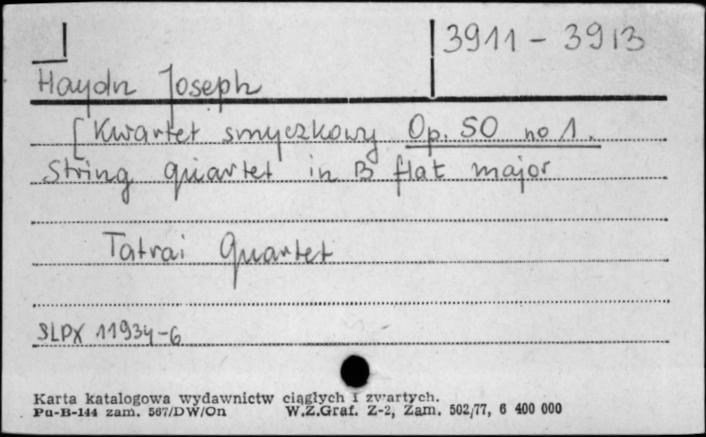 3911 - 3913
Haydn Joseph
[Kwartet smyczkowy Op. 50 no 1.
String quartet in B flat major
Tatrai Quartet
SLPX 11934-6
Karta katalogowa wydawnictw ciągłych i zwartych.
Pu-B-144 zam. 567/DW/On W.Z.Graf. Z-2, Zam. 502/77, 6 400 000